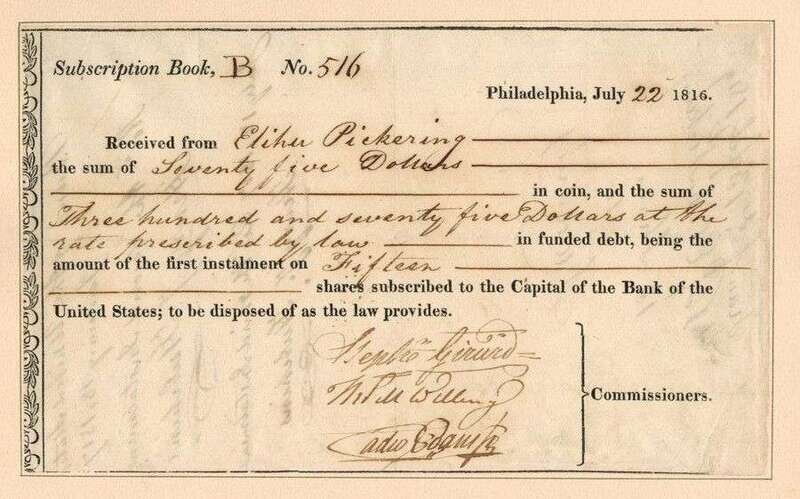 Subscription Book, B No. 516
Philadelphia, July 22 1816.
Received from Elihu Pickering
the sum of Seventy five Dollars
in coin, and the sum of
Three hundred and seventy five Dollars at the
rate prescribed by law in funded debt, being the
amount of the first instalment on Fifteen
shares subscribed to the Capital of the Bank of the
United States; to be disposed of as the law provides.
Stephn Girard
Tho M Willing
Cadw Evans Jr
Commissioners.